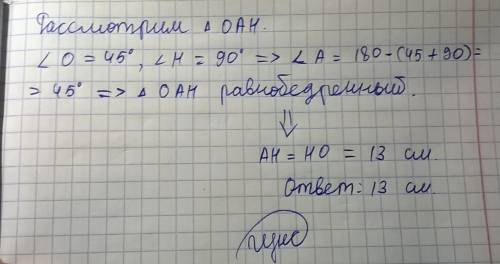 Рассмотрим △ OAH.
∠ O = 45°, ∠ H = 90° => ∠ A = 180 - (45 + 90) =
= 45° => △ OAH равнобедренный.
⇓
AH = HO = 13 см.
Ответ: 13 см.